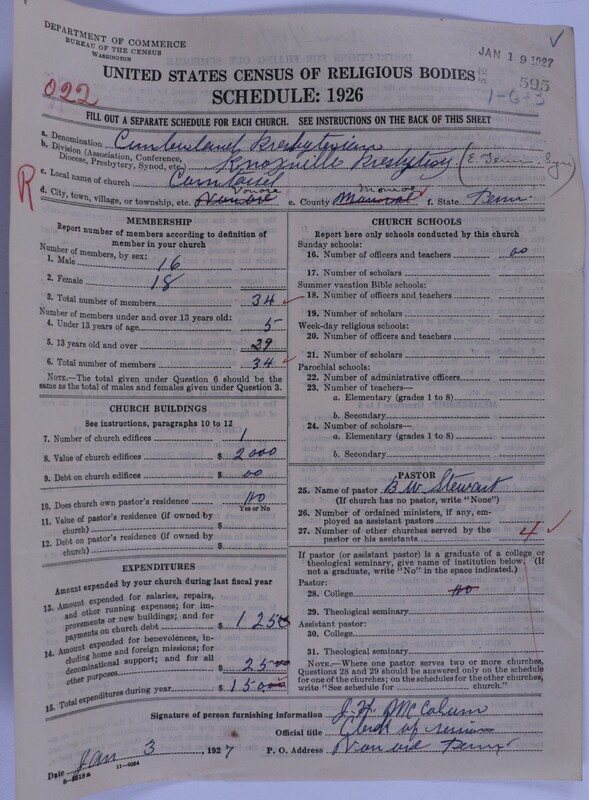 DEPARTMENT OF COMMERCE
BUREAU OF THE CENSUS
WASHINGTON
JAN 19 1927
595
1-6+3
022
UNITED STATES CENSUS OF RELIGIOUS BODIES
SCHEDULE: 1926
FILL OUT A SEPARATE SCHEDULE FOR EACH CHURCH. SEE INSTRUCTIONS ON THE BACK OF THIS SHEET
R
a. Denomination Cumberland Presbyterian
b. Division (Association, Conference, Diocese, Presbytery, Synod, etc.) Knoxville Presbytery (E. Tenn. Syn)
c. Local name of church
d. City, town, village, or township, etc. e. County Monroe f. State Tenn.
MEMBERSHIP
Report number of members according to definition of member in your church
Number of members, by sex:
1. Male 16
2. Female 18
3. Total number of members 34
Number of members under and over 13 years old:
4. Under 13 years of age 5
5. 13 years old and over 29
6. Total number of members 34
NOTE.—The total given under Question 6 should be the same as the total of males and females given under Question 3.
CHURCH BUILDINGS
See instructions, paragraphs 10 to 12
7. Number of church edifices 1
8. Value of church edifices $ 2000
9. Debt on church edifices $ 00
10. Does church own pastor's residence No
Yes or No
11. Value of pastor's residence (if owned by church) $
12. Debt on pastor's residence (if owned by church) $
EXPENDITURES
Amount expended by your church during last fiscal year
13. Amount expended for salaries, repairs, and other running expenses; for improvements or new buildings; and for payments on church debt $ 125
14. Amount expended for benevolences, including home and foreign missions; for denominational support; and for all other purposes $ 25
15. Total expenditures during year $ 150
CHURCH SCHOOLS
Report here only schools conducted by this church
Sunday schools:
16. Number of officers and teachers 00
17. Number of scholars
Summer vacation Bible schools:
18. Number of officers and teachers
19. Number of scholars
Week-day religious schools:
20. Number of officers and teachers
21. Number of scholars
Parochial schools:
22. Number of administrative officers
23. Number of teachers—
a. Elementary (grades 1 to 8)
b. Secondary
24. Number of scholars—
a. Elementary (grades 1 to 8)
b. Secondary
PASTOR
25. Name of pastor B W Stewart
(If church has no pastor, write "None")
26. Number of ordained ministers, if any, employed as assistant pastors
27. Number of other churches served by the pastor or his assistants 4
If pastor (or assistant pastor) is a graduate of a college or theological seminary, give name of institution below. (If not a graduate, write "No" in the space indicated.)
Pastor:
28. College No
29. Theological seminary
Assistant pastor:
30. College
31. Theological seminary
NOTE.—Where one pastor serves two or more churches, Questions 28 and 29 should be answered only on the schedule for one of the churches; on the schedules for the other churches, write "See schedule for church."
Signature of person furnishing information J. H. McColum
Official title Clerk of session
Date Jan 3, 1927 P. O. Address Tenn
8-5518a 11-9054